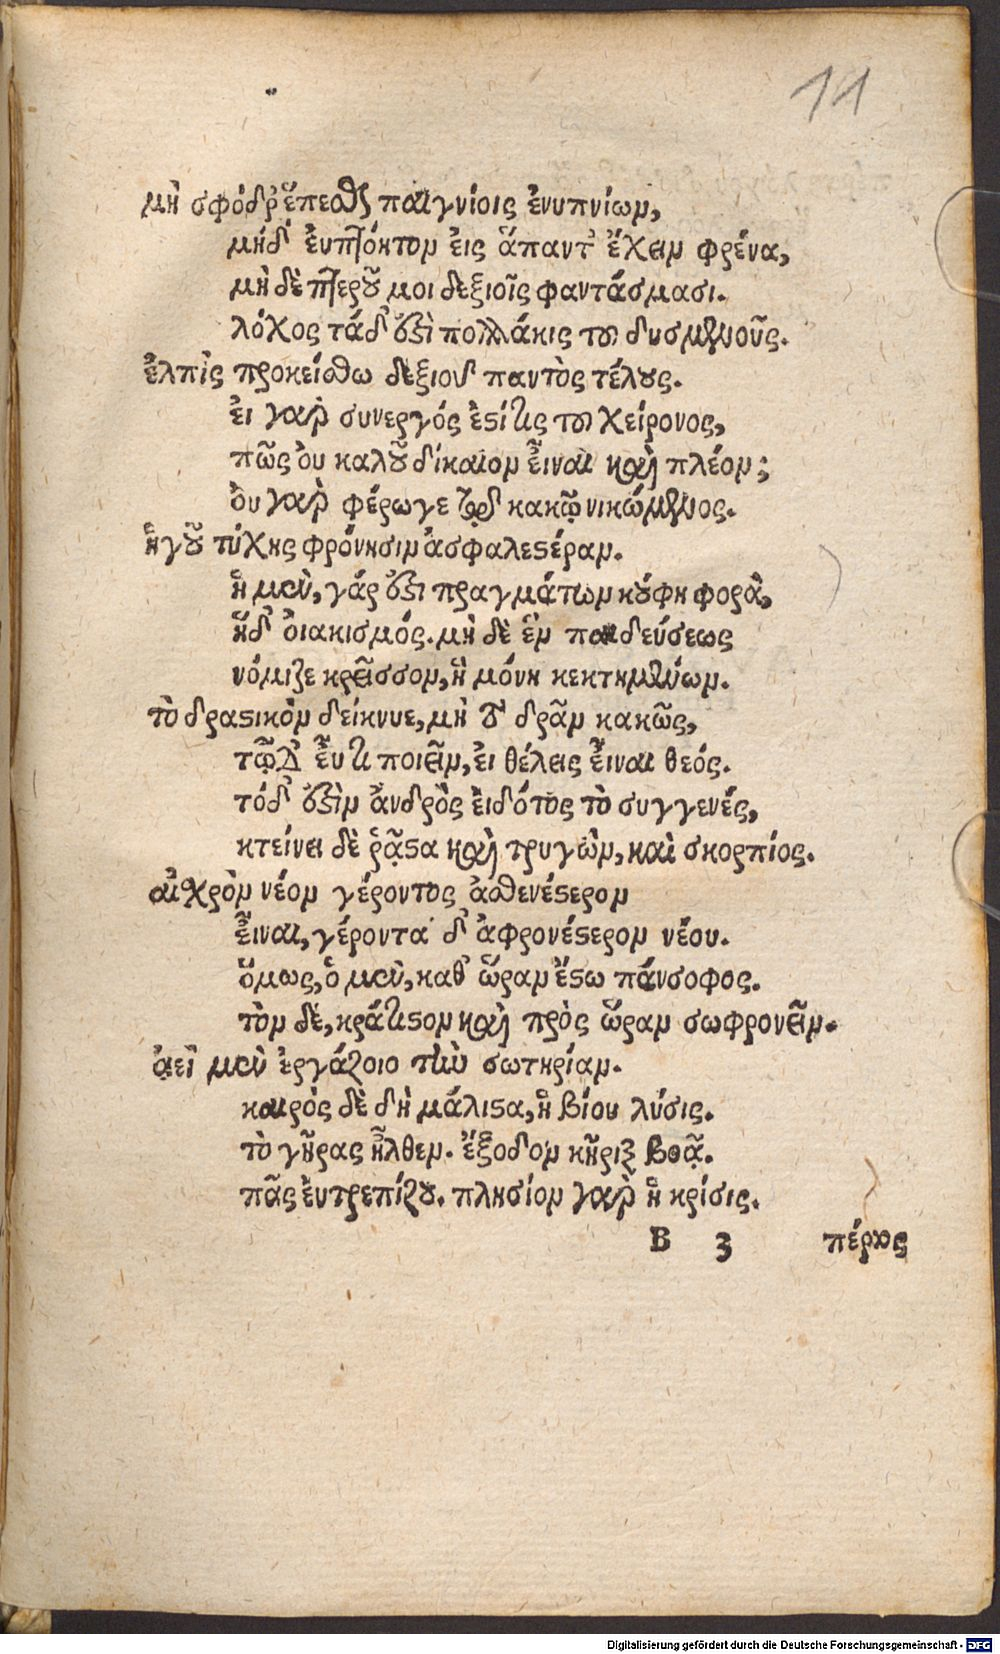 11
μὴ σφόδρ' ἕπεσθαι παιγνίοις ἐνυπνίων,
μήδ' ἐυπτόητον ἐις ἅπαντ' ἔχειν φρένα,
μὴ δὲ πτεροῦ μοι δεξιοῖς φαντάσμασι.
λόχος τάδ' ἐστὶ πολλάκις τοῦ δυσμενοῦς.
ἐλπὶς προκείσθω δεξιοῦ παντὸς τέλους.
ἐι γὰρ συνεργός ἐστί τις τοῦ χείρονος,
πῶς ὀυ καλοῦ δίκαιον εἶναι καὶ πλέον;
ὀυ γὰρ φέρωγε τῷδε κακῷ νικώμενος.
ἡγοῦ τύχης φρόνησιν ἀσφαλεστέραν.
ἡ μὲν, γάρ ἐστι πραγμάτων κούφη φορὰ,
ἥδ' ὀιακισμός. μὴ δὲ ἓν παιδεύσεως
νόμιζε κρεῖσσον, ἣ μόνη κεκτημένων.
τὸ δραστικὸν δείκνυε, μὴ τοῦ δρᾶν κακῶς,
τῷδ' εὖ τι ποιεῖν, ἐι θέλεις εἶναι θεός.
τόδ' ἐστὶν ἀνδρὸς ἐιδότος τὸ συγγενές,
κτείνει δὲ ῥᾷστα καὶ τρυγὼν, καὶ σκορπίος.
αἰσχρὸν νέον γέροντος ἀσθενέστερον
εἶναι, γέροντα δ' ἀφρονέστερον νέου.
ὅμως, ὁ μὲν, καθ' ὥραν ἔστω πάνσοφος.
τὸν δὲ, κράτιστον καὶ πρὸς ὥραν σωφρονεῖν.
ἀεὶ μὲν ἐργάζοιο τὴν σωτηρίαν.
καιρὸς δὲ δὴ μάλιστα, ἡ βίου λύσις.
τὸ γῆρας ἦλθεν. ἔξοδον κῆρυξ βοᾷ.
πᾶς ἐυτρεπίζου. πλησίον γὰρ ἡ κρίσις.
B 3 πέρας
Digitalisierung gefördert durch die Deutsche Forschungsgemeinschaft - DFG